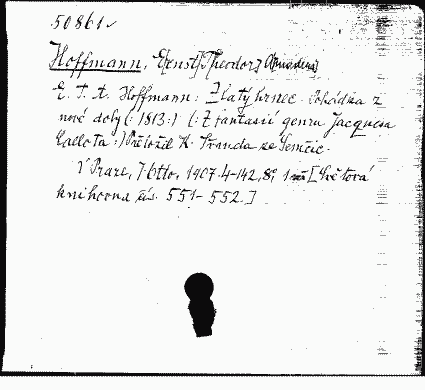 50861
Hoffmann, E[rnst] Theodor] Amadeus]
E. T. A. Hoffmann: Zlatý hrnec. Pohádka z
nové doby (: 1813:) (: Z fantasií genru Jacquesa
Callota :) Přeložil K. Vranda ze Semčic.
V Praze, J. Otto, 1907. 4-142, 8°, 1 [Světová
knihovna čís. 551-552.]